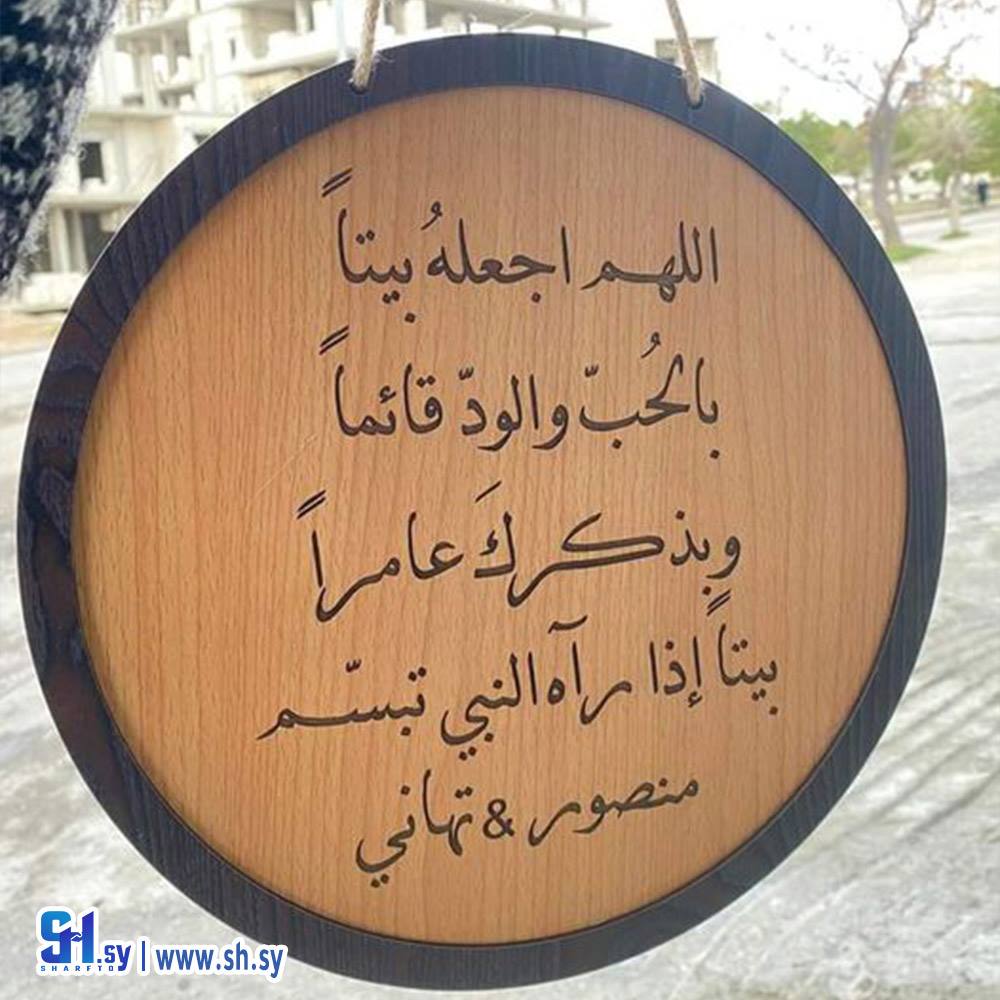 اللهم اجعلهُ بيتاً
بالحُبّ والودّ قائماً
وبذكركَ عامراً
بيتاً إذا رآه النبي تبسّم
منصور & تهاني
SH.sy | www.sh.sy
SHARFTO